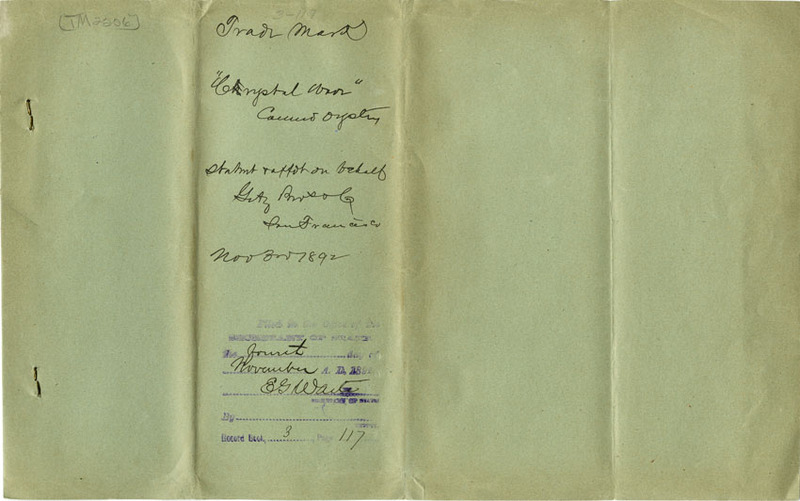 [TM2006]
3-117
Trade Mark
"Chrystal Wave"
Canned Oysters
Statmt & affdt on behalf
Getz Bros & Co
San Francisco
Nov 3rd 1892
Filed in the Office of the
SECRETARY OF STATE
The Fourth day of
November A. D. 1892
E G Waite
SECRETARY OF STATE
By
Record Book 3 Page 117